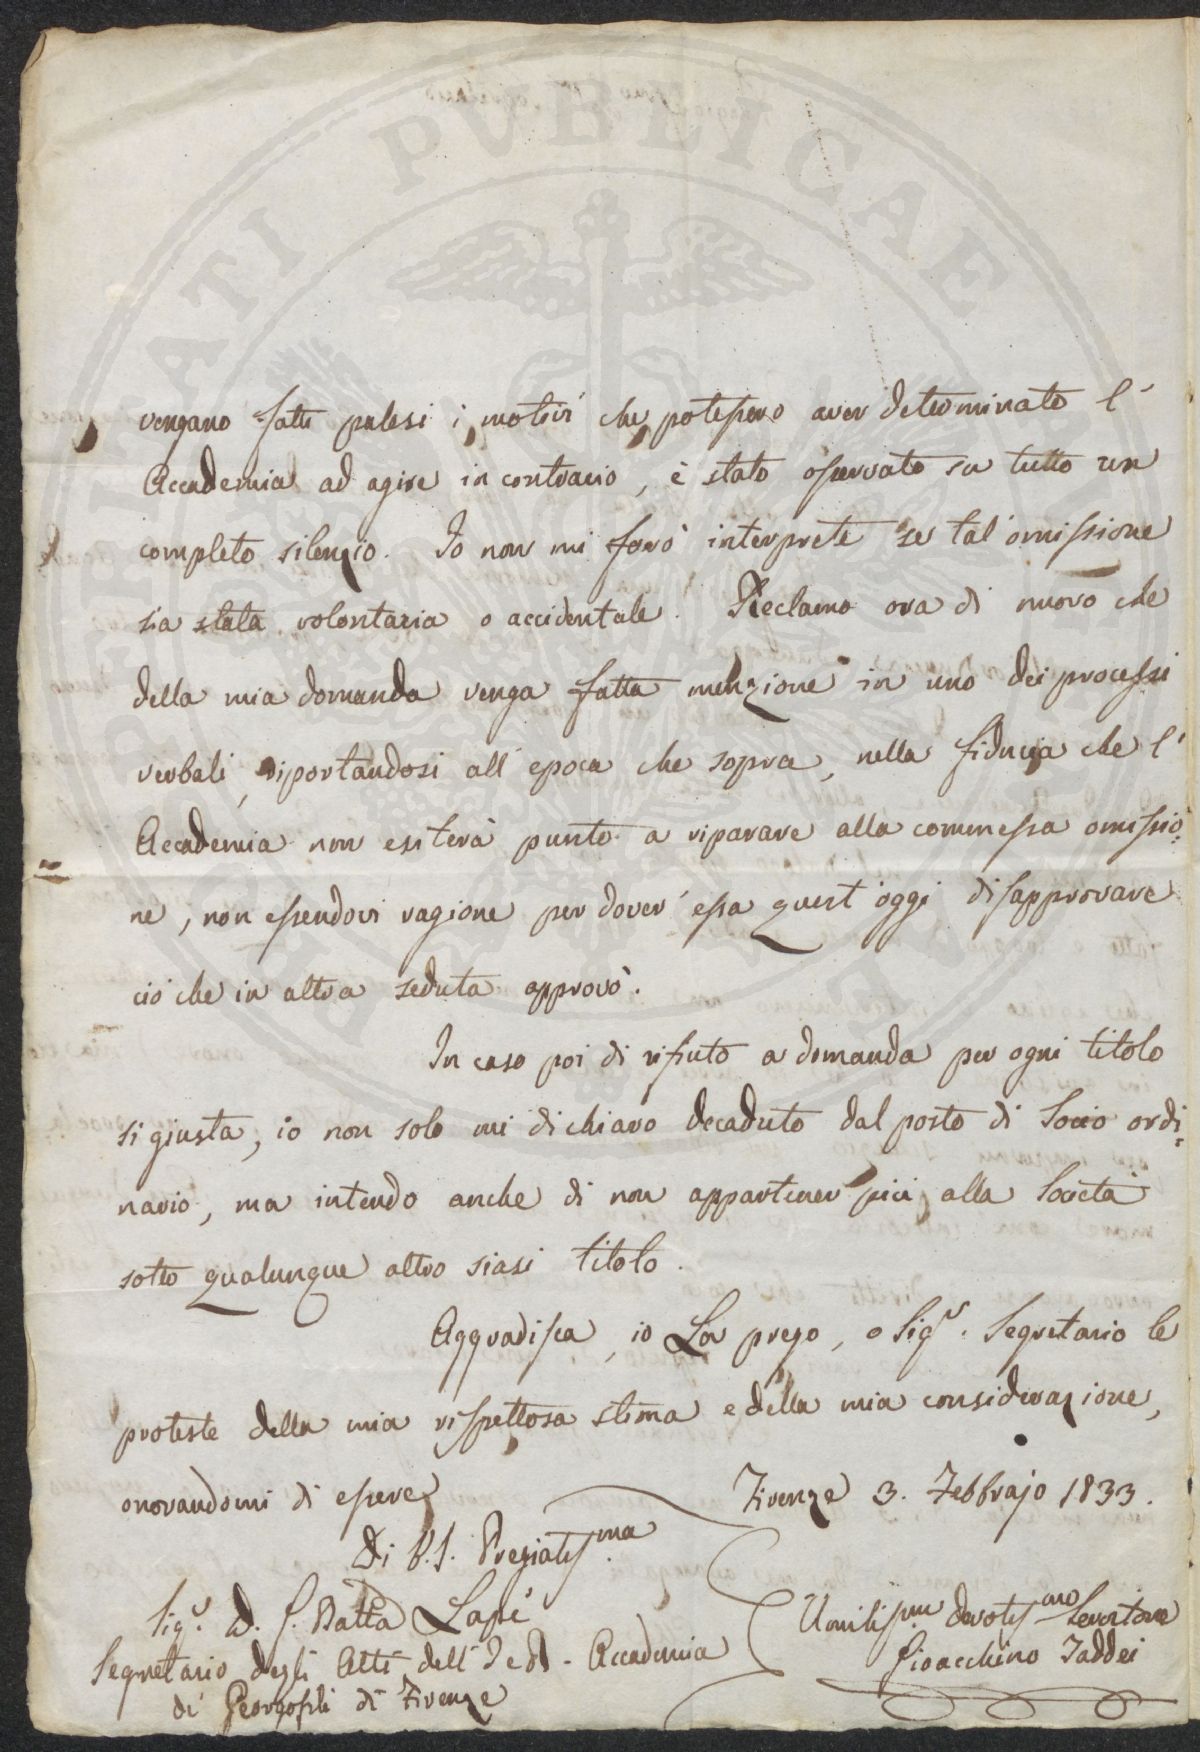 PROSPERITATI PVBLICAE AVGENDAE
vengano fatti palesi i motivi che potessero aver determinato l'
Accademia ad agire in contrario, è stato osservato su tutto un
completo silenzio. Io non mi farò interprete se tal'omissione
sia stata volontaria o accidentale. Reclamo ora di nuovo che
della mia domanda venga fatta menzione in uno dei processi
verbali, riportandosi all'epoca che sopra, nella fiducia che l'
Accademia non esiterà punto a riparare alla commessa omissio:
ne, non essendovi ragione per dover' essa quest'oggi disapprovare
ciò che in altra seduta approvò.
In caso poi di rifiuto a domanda per ogni titolo
sì giusta, io non solo mi dichiaro decaduto dal posto di Socio ordi:
nario, ma intendo anche di non appartener più alla Società
sotto qualunque altro siasi titolo.
Aggradisca, io La prego, o Sig.r Segretario le
proteste della mia rispettosa stima e della mia considerazione,
onorandomi di essere
Firenze 3. Febbrajo 1833.
Di V.S. Pregiatis.ma
Sig.r D. G. Batta Lapi
Segretario degli Atti dell'I e R. Accademia
de' Georgofili di Firenze
Umiliss.mo devotis.mo Servitore
Gioacchino Taddei